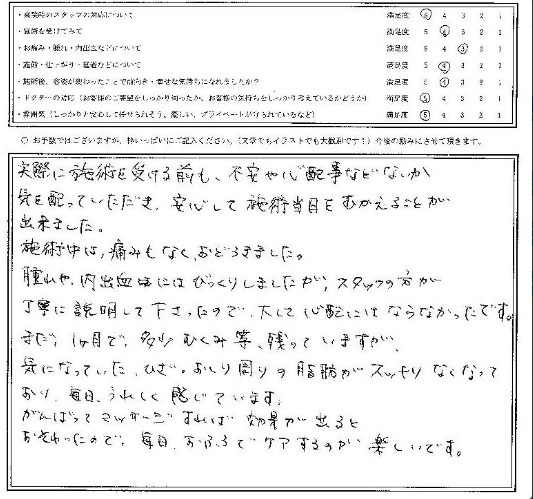 ・来院時のスタッフの対応について 満足度 5 4 3 2 1
・施術を受けてみて 満足度 5 4 3 2 1
・お痛み・腫れ・内出血などについて 満足度 5 4 3 2 1
・施術・仕上がり・経過などについて 満足度 5 4 3 2 1
・施術後、容姿が変わったことで前向き・幸せな気持ちになれましたか? 満足度 5 4 3 2 1
・ドクターの対応(お客様のご要望をしっかり伺ったか、お客様の気持ちをしっかり考えているかどうか) 満足度 5 4 3 2 1
・雰囲気(しっかりと安心して任せられそう、優しい、プライベートが守られているなど) 満足度 5 4 3 2 1
○ お手数ではございますが、枠いっぱいにご記入ください。(文章でもイラストでも大歓迎です!)今後の励みにさせて頂きます。
実際に施術を受ける前も、不安や心配事などないか
気を配っていただき、安心して施術当日をむかえることが
出来ました。
施術中は、痛みもなく、おどろきました。
腫れや、内出血にはびっくりしましたが、スタッフの方が
丁寧に説明して下さったので、大して心配にはならなかったです。
まだ、1ヶ月で、多少むくみ等、残っていますが、
気になっていた、ひざ・おしり周りの脂肪がスッキリなくなって
おり、毎日、うれしく感じています。
がんばってマッサージすれば効果が出ると
おそわったので、毎日、おふろでケアするのが楽しいです。